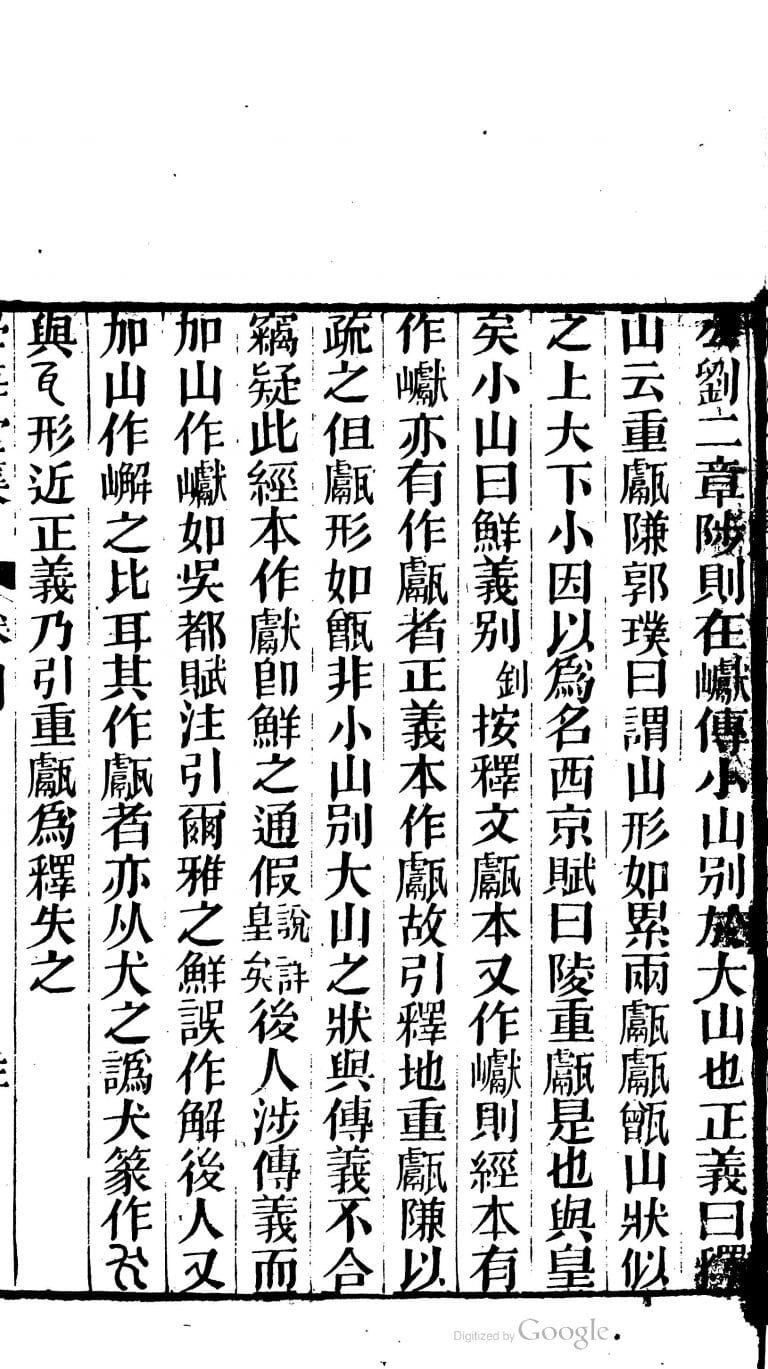 公劉二章陟則在巘傳小山别於大山也正義曰釋
山云重甗隒郭璞曰謂山形如累兩甗甗甑山狀似
之上大下小因以爲名西京賦曰陵重甗是也與皇
矣小山曰鮮義别 釗按釋文甗本又作巘則經本有
作巘亦有作甗者正義本作甗故引釋地重甗隒以
疏之但甗形如甑非小山别大山之狀與傳義不合
竊疑此經本作獻卽鮮之通假說詳皇矣後人涉傳義而
加山作巘如吳都賦注引爾雅之鮮誤作解後人又
加山作嶰之比耳其作甗者亦从犬之譌犬篆作
與形近正義乃引重甗爲釋失之
Digitized by Google